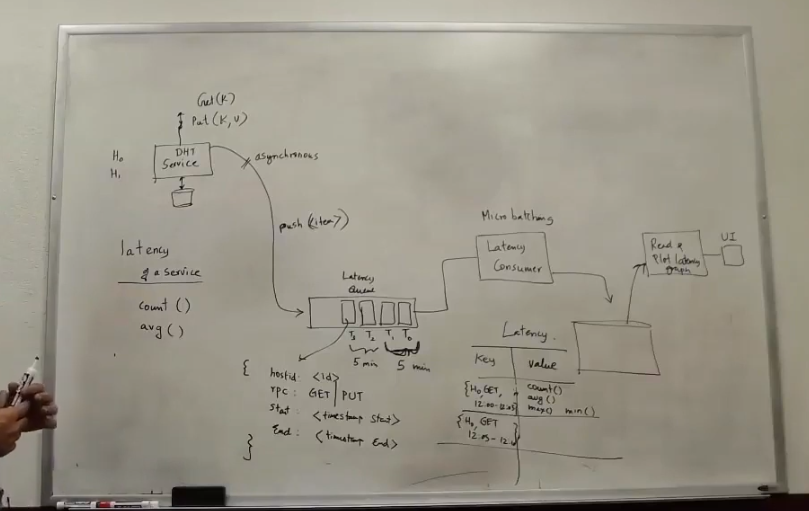 Get(K)
Put(K,V)
H₀
H₁
DHT
Service
asynchronous
push(<item>)
latency
of a service
count()
avg()
Latency
Queue
T₃ T₂ T₁ T₀
5 min 5 min
{
hostid: <id>
rpc: GET | PUT
Start: <timestamp start>
End: <timestamp End>
}
Micro batching
Latency
Consumer
Latency
Key Value
{H₀, GET,
12:00-12:05
count()
avg()
max() min()
{H₀, GET
12:05-
}
Read &
Plot latency
graph
UI